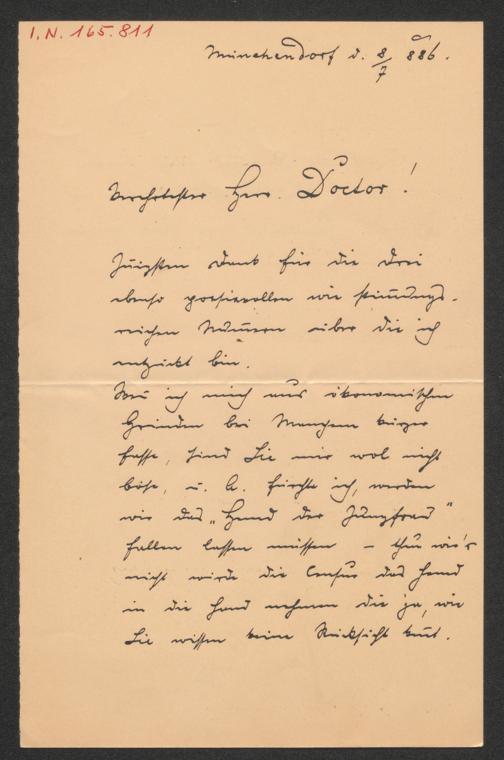 I.N. 165.811
Münchendorf d. 8/7 886.
Verehrtester Herr Doctor!
Innigsten Dank für die drei
ebenso poesievollen wie stimmungs-
reichen Nummern über die ich
entzückt bin.
Wenn ich mich aus ökonomischen
Gründen bei Manchem kürzer
fasse, sind Sie mir wol nicht
böse, u. A. fürchte ich, werden
wir das „Hemd der Jungfrau"
fallen lassen müssen – thun wir's
nicht würde die Censur das Hemd
in die Hand nehmen die ja, wie
Sie wissen keine Rücksicht kennt.